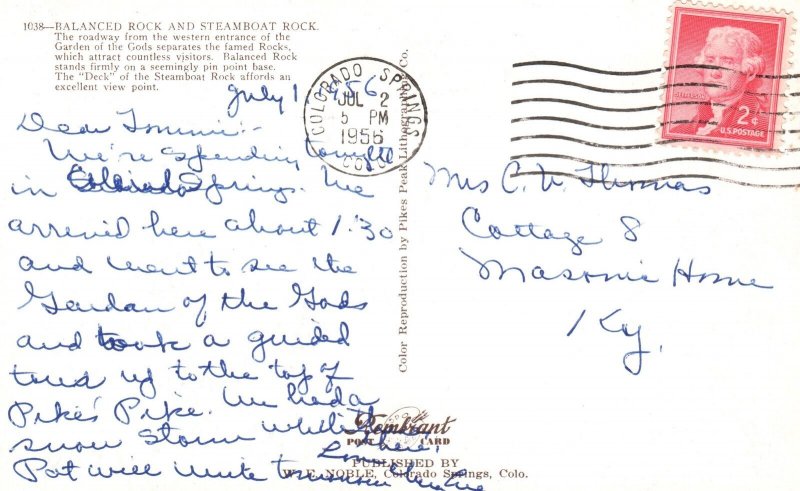 1038—BALANCED ROCK AND STEAMBOAT ROCK.
The roadway from the western entrance of the
Garden of the Gods separates the famed Rocks,
which attract countless visitors. Balanced Rock
stands firmly on a seemingly pin point base.
The "Deck" of the Steamboat Rock affords an
excellent view point.
July 1 '56
Dear Tommie:-
We're spending tonight
in Colorado Springs. We
arrived here about 1:30
and went to see the
Garden of the Gods
and took a guided
tour up to the top of
Pike's Pike. We had a
snow storm while
there.
Pat will write tomorrow
COLORADO SPRINGS
JUL 2
5 PM
1956
COLO.
Color Reproduction by Pikes Peak Lithographing Co.
2¢
U.S. POSTAGE
Mrs C. N. Thomas
Cottage 8
Masonic Home
Ky.
Rembrant
POST CARD
PUBLISHED BY
W. E. NOBLE, Colorado Springs, Colo.